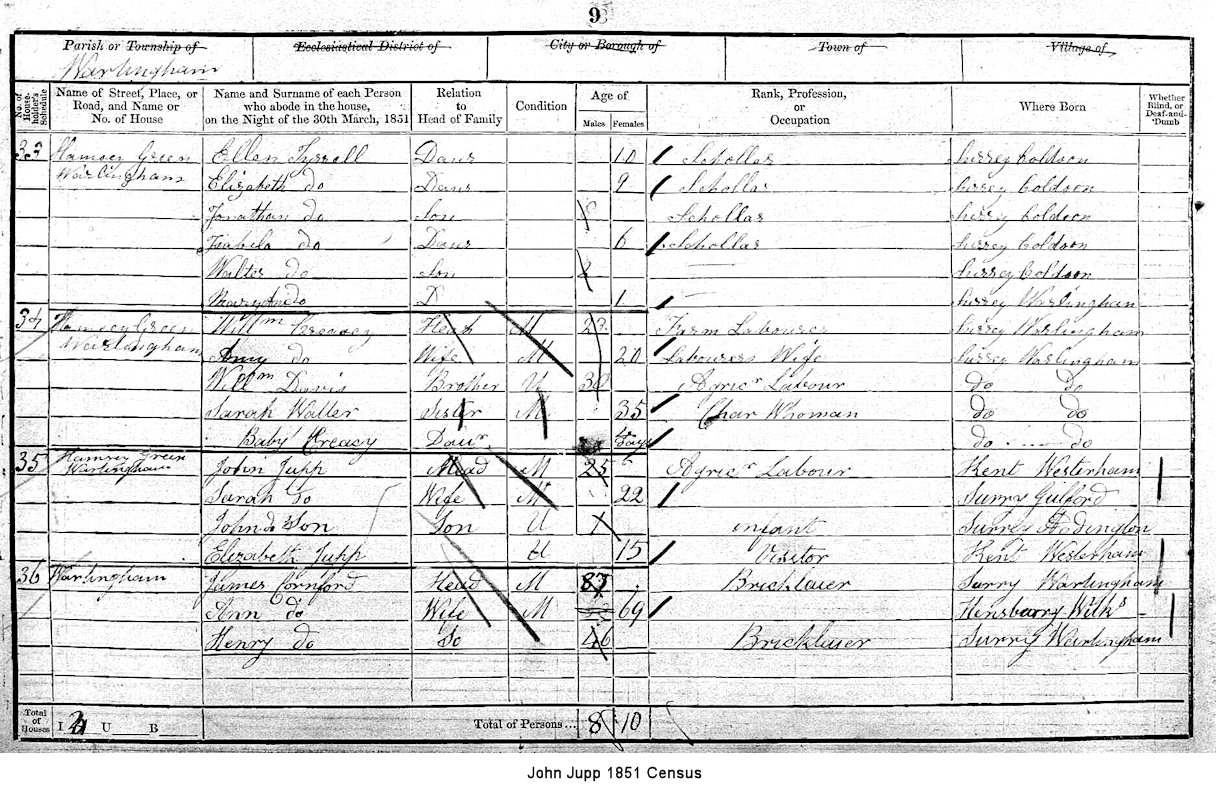 9
Parish or Township of Ecclesiastical District of City or Borough of Town of Village of
Warlingham
No. of House-holder's Schedule
Name of Street, Place, or Road, and Name or No. of House
Name and Surname of each Person who abode in the house, on the Night of the 30th March, 1851
Relation to Head of Family
Condition
Age of
Males Females
Rank, Profession, or Occupation
Where Born
Whether Blind, or Deaf-and-Dumb
33 Hamsey Green Ellen Tyrroll Daur 10 Schollar Surrey Coldson
Warlingham Elizabeth do Daur 9 Schollar Surrey Coldson
Jonathan do Son Schollar Surrey Coldson
Isabela do Daur 6 Schollar Surrey Coldson
Walter do Son 2 Surrey Coldson
Mary An do D 1 Surrey Warlingham
34 Hamsey Green Willm Creasey Head M 23 Farm Labourer Surrey Warlingham
Warlingham Amy do Wife M 20 Labourers Wife Surrey Warlingham
Willm Davis Brother U 30 Agricr Labour do do
Sarah Waller Sister M 35 Char Whoman do do
Baby Creasy Daur days do do
35 Hamsey Green John Jupp Head M 25 Agricr Labour Kent Westerham
Warlingham Sarah Do Wife M 22 Surry Gulford
John do Son Son U 1 infant Surrey
Elizabeth Jupp U 15 Visitor Kent Westerham
36 Warlingham James Cornford Head M Bricklaier Surry Warlingham
Ann do Wife M 69 Wilts
Henry do So 46 Bricklaier Surry Warlingham
Total of Houses I U B Total of Persons... 8 10
John Jupp 1851 Census